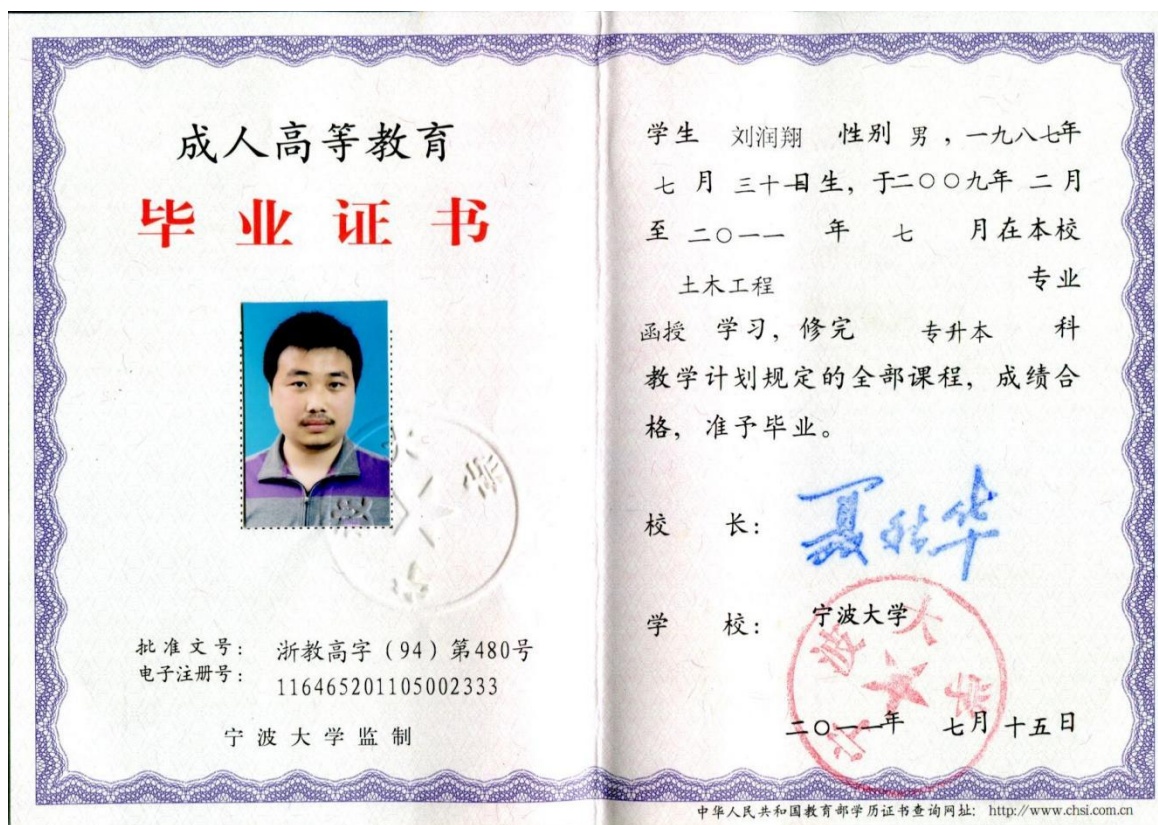 成人高等教育
毕业证书
批准文号: 浙教高字(94)第480号
电子注册号: 116465201105002333
宁波大学监制
学生 刘润翔 性别 男,一九八七年
七月 三十日生,于二〇〇九年 二月
至 二〇一一 年 七 月在本校
土木工程 专业
函授 学习,修完 专升本 科
教学计划规定的全部课程,成绩合
格,准予毕业。
校 长:
学 校: 宁波大学
宁波大学
二〇一一年 七月十五日
中华人民共和国教育部学历证书查询网址: http://www.chsi.com.cn